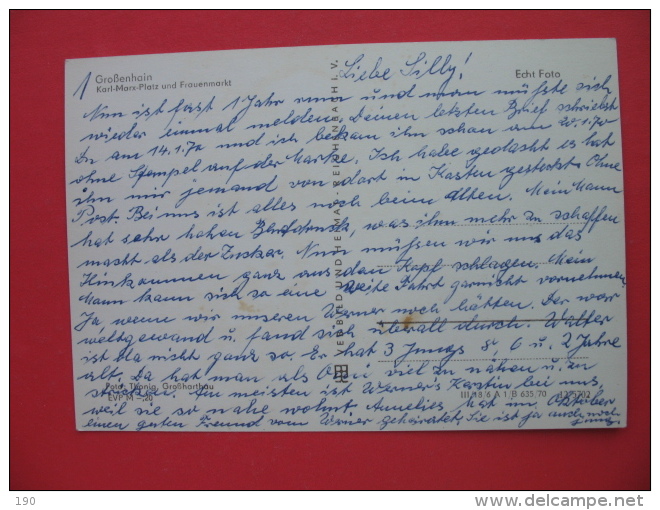 1
Großenhain
Karl-Marx-Platz und Frauenmarkt
Echt Foto
Liebe Silly!
Nun ist fast 1 Jahr rum und man müßte sich
wieder einmal melden. Deinen letzten Brief schriebst
Du am 14.1.70 und ich bekam ihn schon am 20.1.70
ohne Stempel auf der Marke. Ich habe gedacht es hat
ihn mir jemand von dort in Kasten gesteckt. Ohne
Post. Bei uns ist alles noch beim Alten. Mein Mann
hat sehr hohen Blutdruck, was ihm mehr zu schaffen
macht als der Zucker. Nun müssen wir uns das
Hinkommen ganz aus dem Kopf schlagen. Mein
Mann kann sich so eine weite Fahrt garnicht vornehmen.
Ja wenn wir unseren Werner noch hätten. Der war
weltgewand u. fand sich überall durch. Walter
ist da nicht ganz so. Er hat 3 Jungs 8, 6 u. 2 Jahre
alt. Da hat man als Oma viel zu nähen u. zu
stopfen. Am meisten ist Werner's Kerstin bei uns,
weil sie so nahe wohnt. Annelies hat im Oktober
einen guten Freund vom Werner geheiratet. Sie ist ja auch noch
jung.
Foto: Thonig, Großharthau
EVP M –,20
III/18/6 A 1/B 635/70
VERLAG BILD UND HEIMAT REICHENBACH I. V.
190
www.delcampe.net